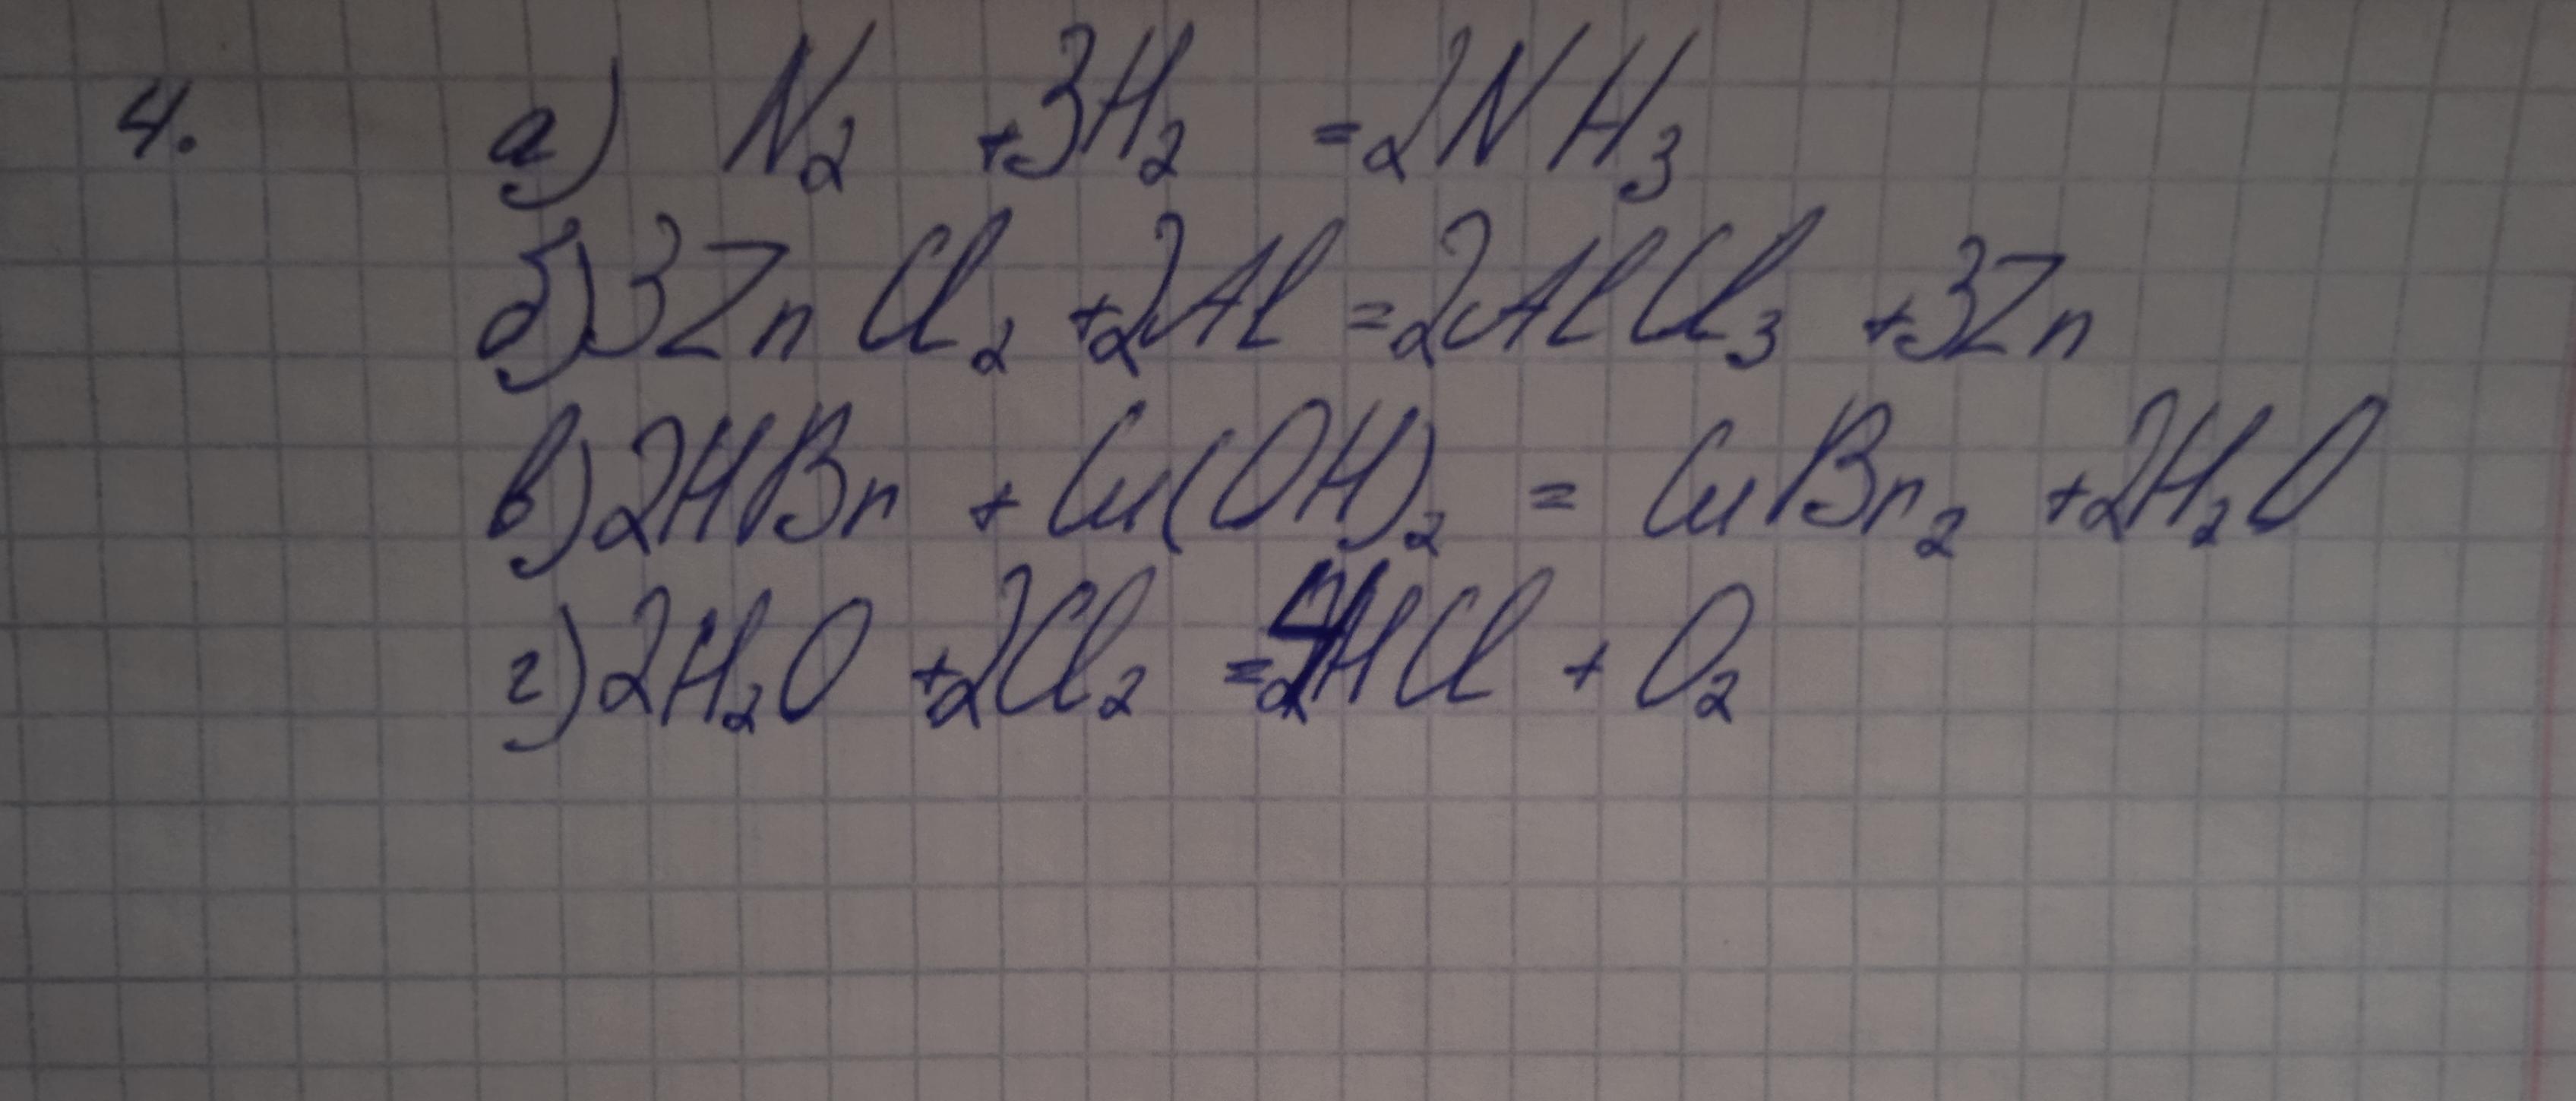 4. а) N₂ +3H₂ =2NH₃
б)3ZnCl₂ +2Al=2AlCl₃ +3Zn
в)2HBr + Cu(OH)₂ = CuBr₂ +2H₂O
г)2H₂O +2Cl₂ =4HCl + O₂